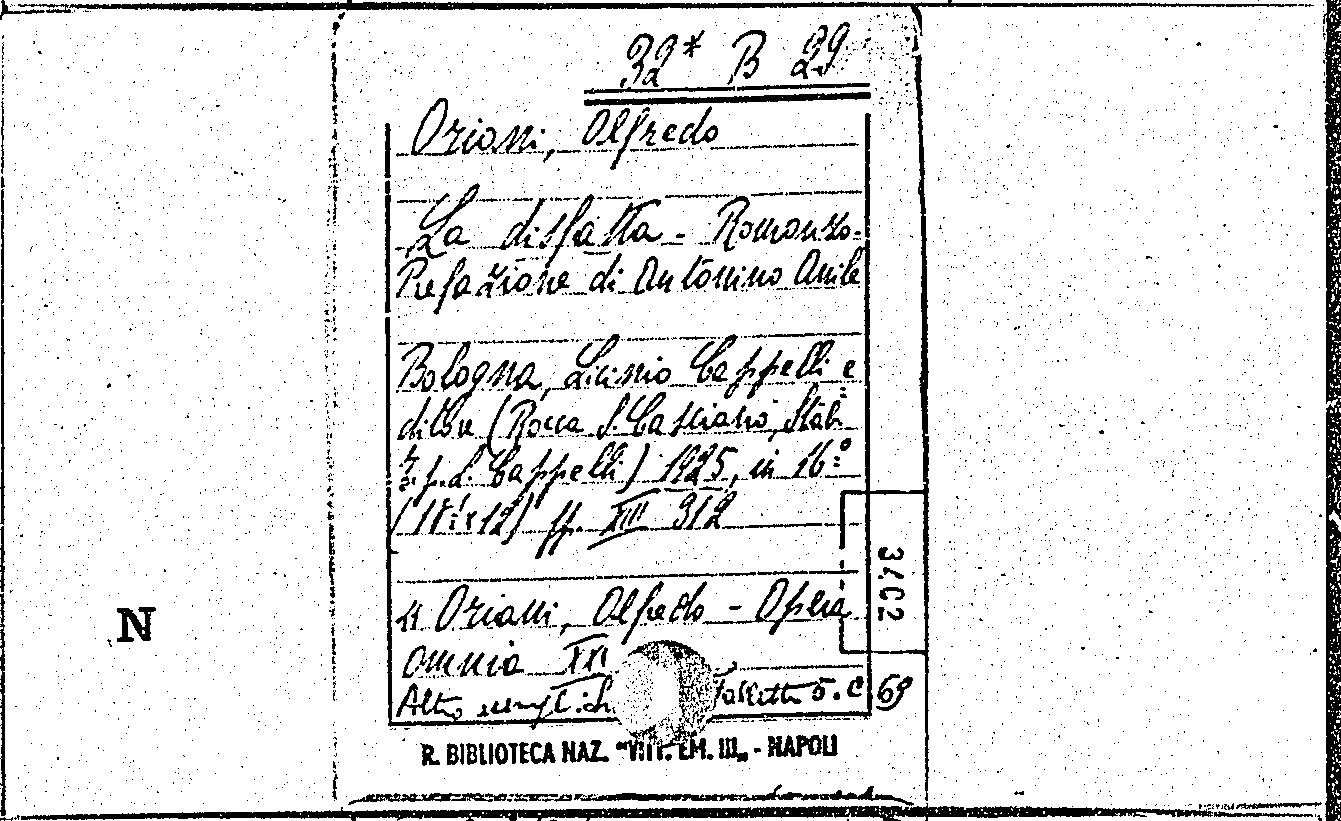 32* B 29
Oriani, Alfredo
La disfatta - Romanzo.
Prefazione di Antonino Anile
Bologna, Licinio Cappelli e
ditore (Rocca S. Casciano, Stab.
tip. L. Cappelli) 1925, in 16.°
pp. XIII 312
Oriani, Alfredo - Opera
omnia XXI
Altro
3702
69
R. BIBLIOTECA NAZ. "VITT. EM. III„ - NAPOLI
N